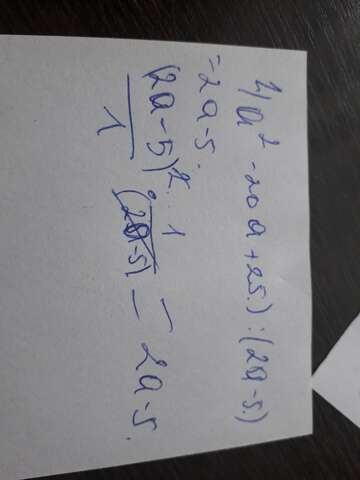 4a² - 20a + 25.) : (2a - 5.)
= 2a - 5.
(2a - 5)² · 1
1 (2a - 5) = 2a - 5.